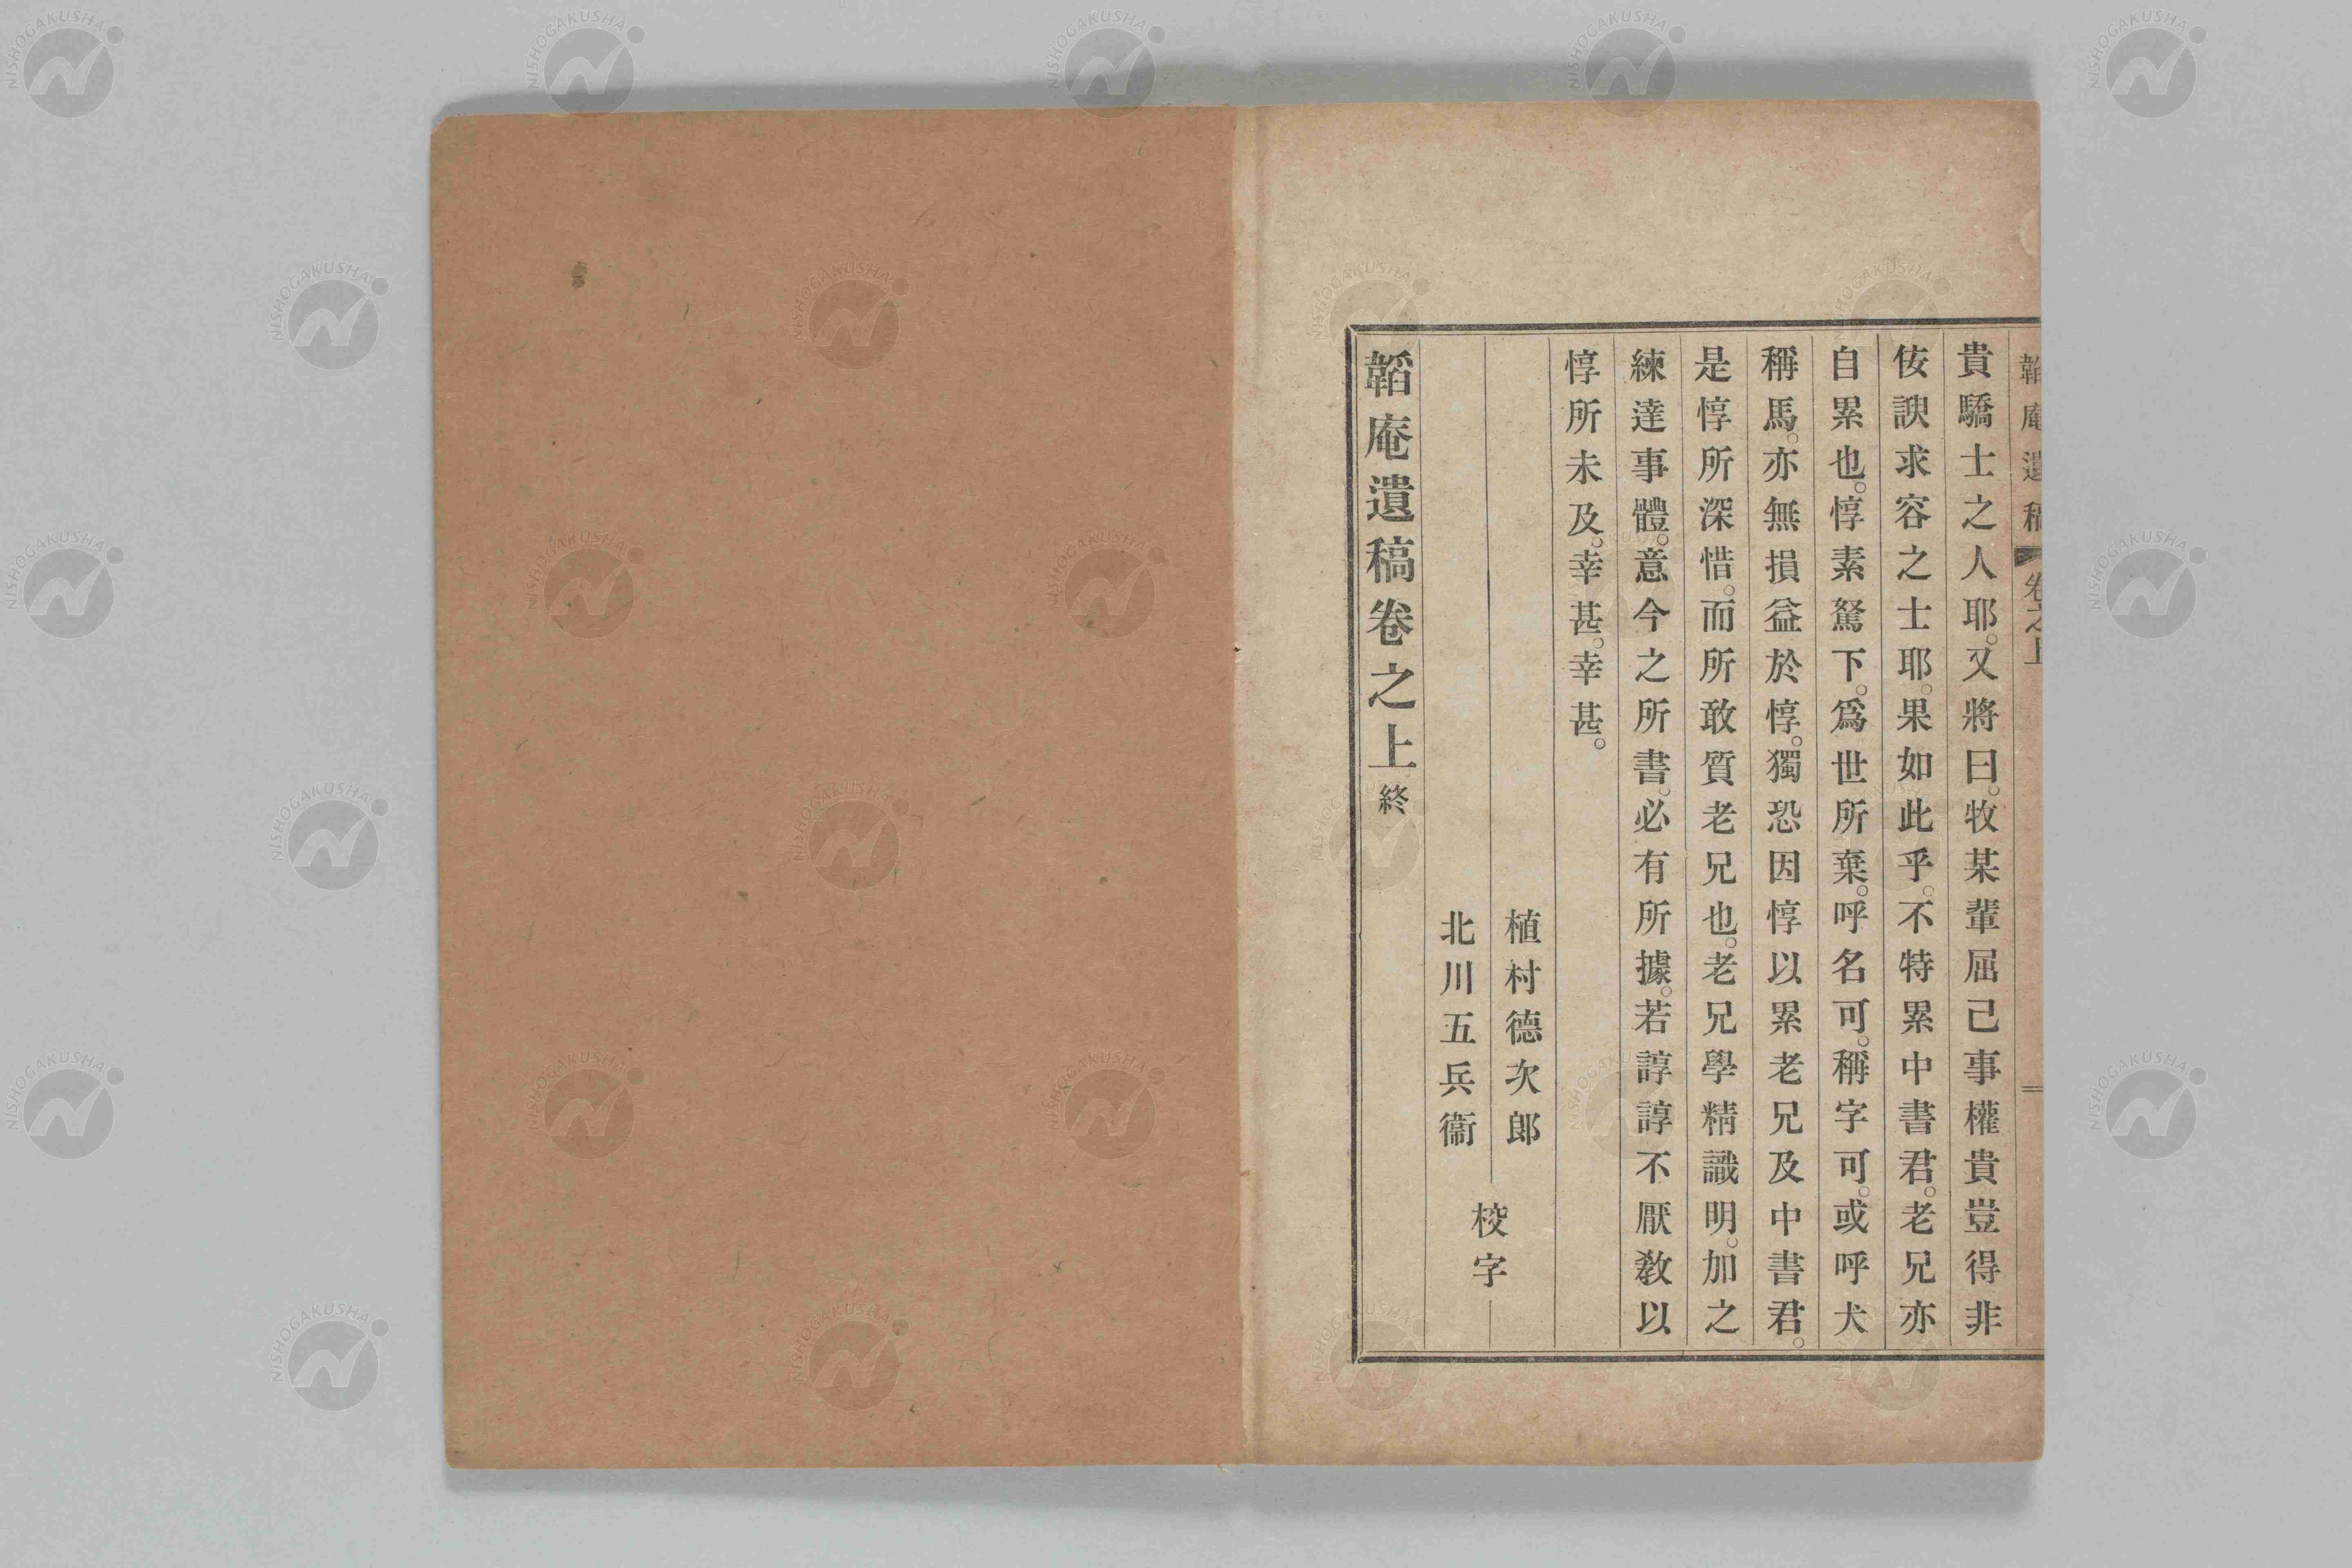 韜庵遺稿 卷之上
貴驕士之人耶。又將曰。牧某輩屈己事權貴豈得非
佞諛求容之士耶。果如此乎。不特累中書君。老兄亦
自累也。惇素駑下。爲世所棄。呼名可。稱字可。或呼犬
稱馬。亦無損益於惇。獨恐因惇以累老兄及中書君。
是惇所深惜。而所敢質老兄也。老兄學精識明。加之
練達事體。意今之所書。必有所據。若諄諄不厭教以
惇所未及。幸甚。幸甚。
植村德次郎
北川五兵衞
校字
韜庵遺稿卷之上終
NISHOGAKUSHA